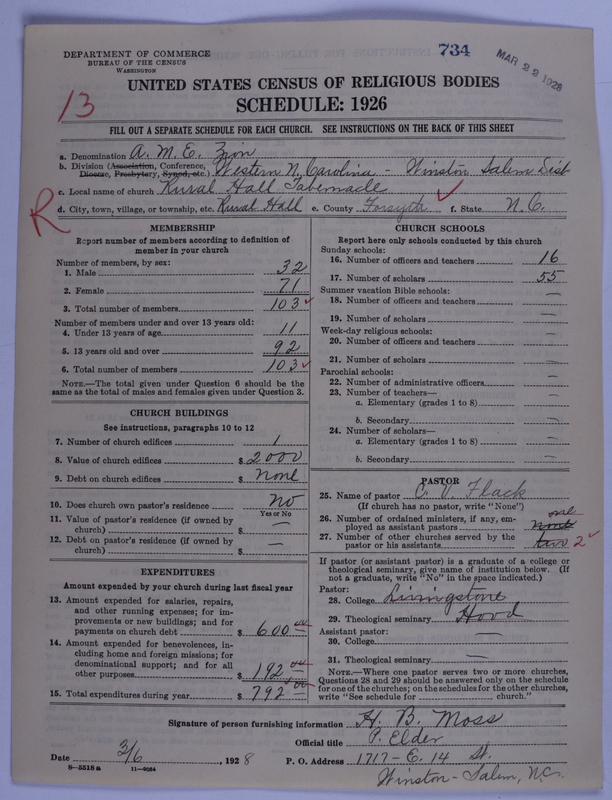 734
MAR 22 1928
DEPARTMENT OF COMMERCE
BUREAU OF THE CENSUS
WASHINGTON
UNITED STATES CENSUS OF RELIGIOUS BODIES
SCHEDULE: 1926
13
FILL OUT A SEPARATE SCHEDULE FOR EACH CHURCH. SEE INSTRUCTIONS ON THE BACK OF THIS SHEET
a. Denomination A. M. E. Zion
b. Division (Association, Conference, Diocese, Presbytery, Synod, etc.) Western N. Carolina - Winston Salem Dist
c. Local name of church Rural Hall Tabernacle
R
d. City, town, village, or township, etc. Rural Hall e. County Forsyth f. State N. C.
MEMBERSHIP
Report number of members according to definition of
member in your church
Number of members, by sex:
1. Male 32
2. Female 71
3. Total number of members 103
Number of members under and over 13 years old:
4. Under 13 years of age 11
5. 13 years old and over 92
6. Total number of members 103
NOTE.—The total given under Question 6 should be the
same as the total of males and females given under Question 3.
CHURCH BUILDINGS
See instructions, paragraphs 10 to 12
7. Number of church edifices 1
8. Value of church edifices $ 2000
9. Debt on church edifices $ none
10. Does church own pastor's residence no
Yes or No
11. Value of pastor's residence (if owned by
church) $ —
12. Debt on pastor's residence (if owned by
church) $ —
EXPENDITURES
Amount expended by your church during last fiscal year
13. Amount expended for salaries, repairs,
and other running expenses; for im-
provements or new buildings; and for
payments on church debt $ 600.00
14. Amount expended for benevolences, in-
cluding home and foreign missions; for
denominational support; and for all
other purposes $ 192.00
15. Total expenditures during year $ 792.00
CHURCH SCHOOLS
Report here only schools conducted by this church
Sunday schools:
16. Number of officers and teachers 16
17. Number of scholars 55
Summer vacation Bible schools:
18. Number of officers and teachers —
19. Number of scholars —
Week-day religious schools:
20. Number of officers and teachers —
21. Number of scholars —
Parochial schools:
22. Number of administrative officers —
23. Number of teachers—
a. Elementary (grades 1 to 8) —
b. Secondary —
24. Number of scholars—
a. Elementary (grades 1 to 8) —
b. Secondary —
PASTOR
25. Name of pastor C. V. Flack
(If church has no pastor, write "None")
26. Number of ordained ministers, if any, em-
ployed as assistant pastors none one
27. Number of other churches served by the
pastor or his assistants two 2
If pastor (or assistant pastor) is a graduate of a college or
theological seminary, give name of institution below. (If
not a graduate, write "No" in the space indicated.)
Pastor:
28. College Livingstone
29. Theological seminary Hood
Assistant pastor:
30. College —
31. Theological seminary —
NOTE.—Where one pastor serves two or more churches,
Questions 28 and 29 should be answered only on the schedule
for one of the churches; on the schedules for the other churches,
write "See schedule for church."
Signature of person furnishing information H. B. Moss
Official title P. Elder
Date 3/6, 1928 P. O. Address 1717 - E. 14 St.
8—5518 a 11—9064
Winston-Salem, N.C.